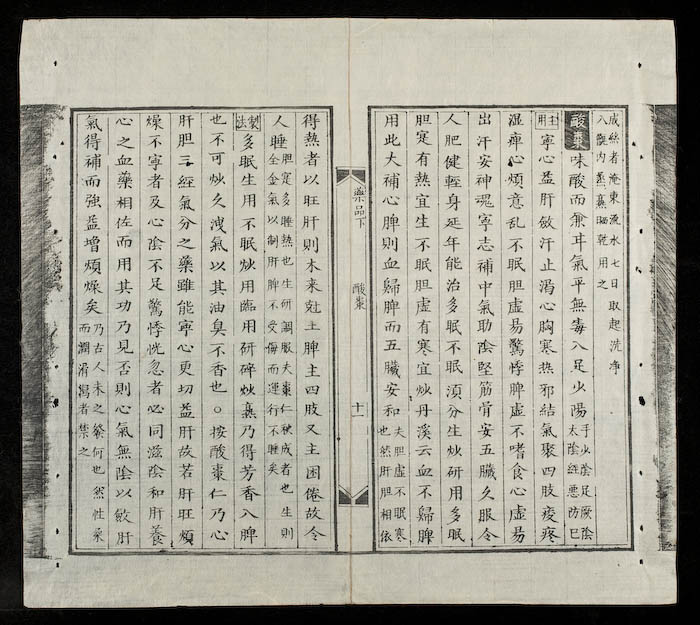 成絲者淹東流水七日取起洗净
入甑內蒸晒乾用之
酸棗 味酸而兼耳氣平無毒入足少陽
手少陰足厥陰
太陰經惡防巳
主用 寧心益肝斂汗止渴心胸寒熱邪結氣聚四肢痠疼
濕痺心煩意乱不眠胆虛易驚悸脾虛不嗜食心虛易
出汗安神魂寧志補中氣助陰堅筋骨安五臟久服令
人肥健輕身延年能治多眠不眠須分生炒研用多眠
胆寔有熱宜生不眠胆虛有寒宜炒丹溪云血不歸脾
用此大補心脾則血歸脾而五臟安和
夫胆虛不眠寒
也然肝胆相依
藥品下 酸棗 十一
得熱者以旺肝則木来尅土脾主四肢又主困倦故令
人睡
胆寔多睡熱也生研調服夫棗仁秋成者也生則
全金氣以制肝脾不受侮而運行不睡矣
製法 多眠生用不眠炒用臨用研碎炒熹乃得芳香入脾
也不可炒久洩氣以其油臭不香也○按酸棗仁乃心
肝胆三經氣分之藥雖能寧心更切益肝故若肝旺煩
燥不寧者及心陰不足驚悸恍忽者必同滋陰和肝養
心之血藥相佐而用其功乃見否則心氣無陰以斂肝
氣得補而強益增煩燥矣
乃古人未之發何也然性柔
而潤滑瀉者集之